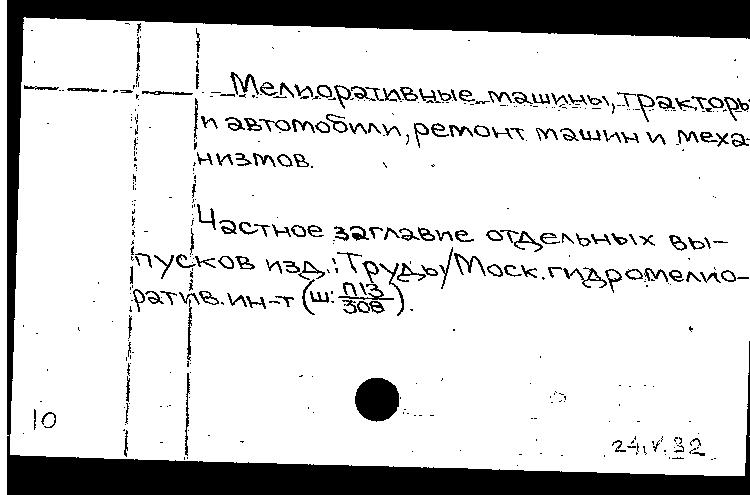 Мелиоративные машины, тракторы
и автомобили, ремонт машин и меха-
низмов.
Частное заглавие отдельных вы-
пусков изд.: Труды/Моск.гидромелио-
ратив.ин-т (ш: П13/308).
10
24.V.82